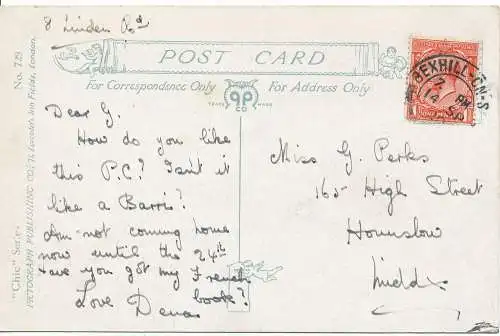 8 Linden Rd
POST CARD
For Correspondence Only
For Address Only
TRADE MARK
PP
CO
No. 729
"Chic" Series
PICTOGRAPH PUBLISHING CO., Lincoln's Inn Fields, London.
BEXHILL-ON-S
7 PM
14 SP
Dear G.
How do you like
this P.C.? Isn't it
like a Barris?
Am not coming home
now until the 24th
Have you got my French
book?
Love Dena
Miss G. Perks
165 High Street
Hounslow
Middx